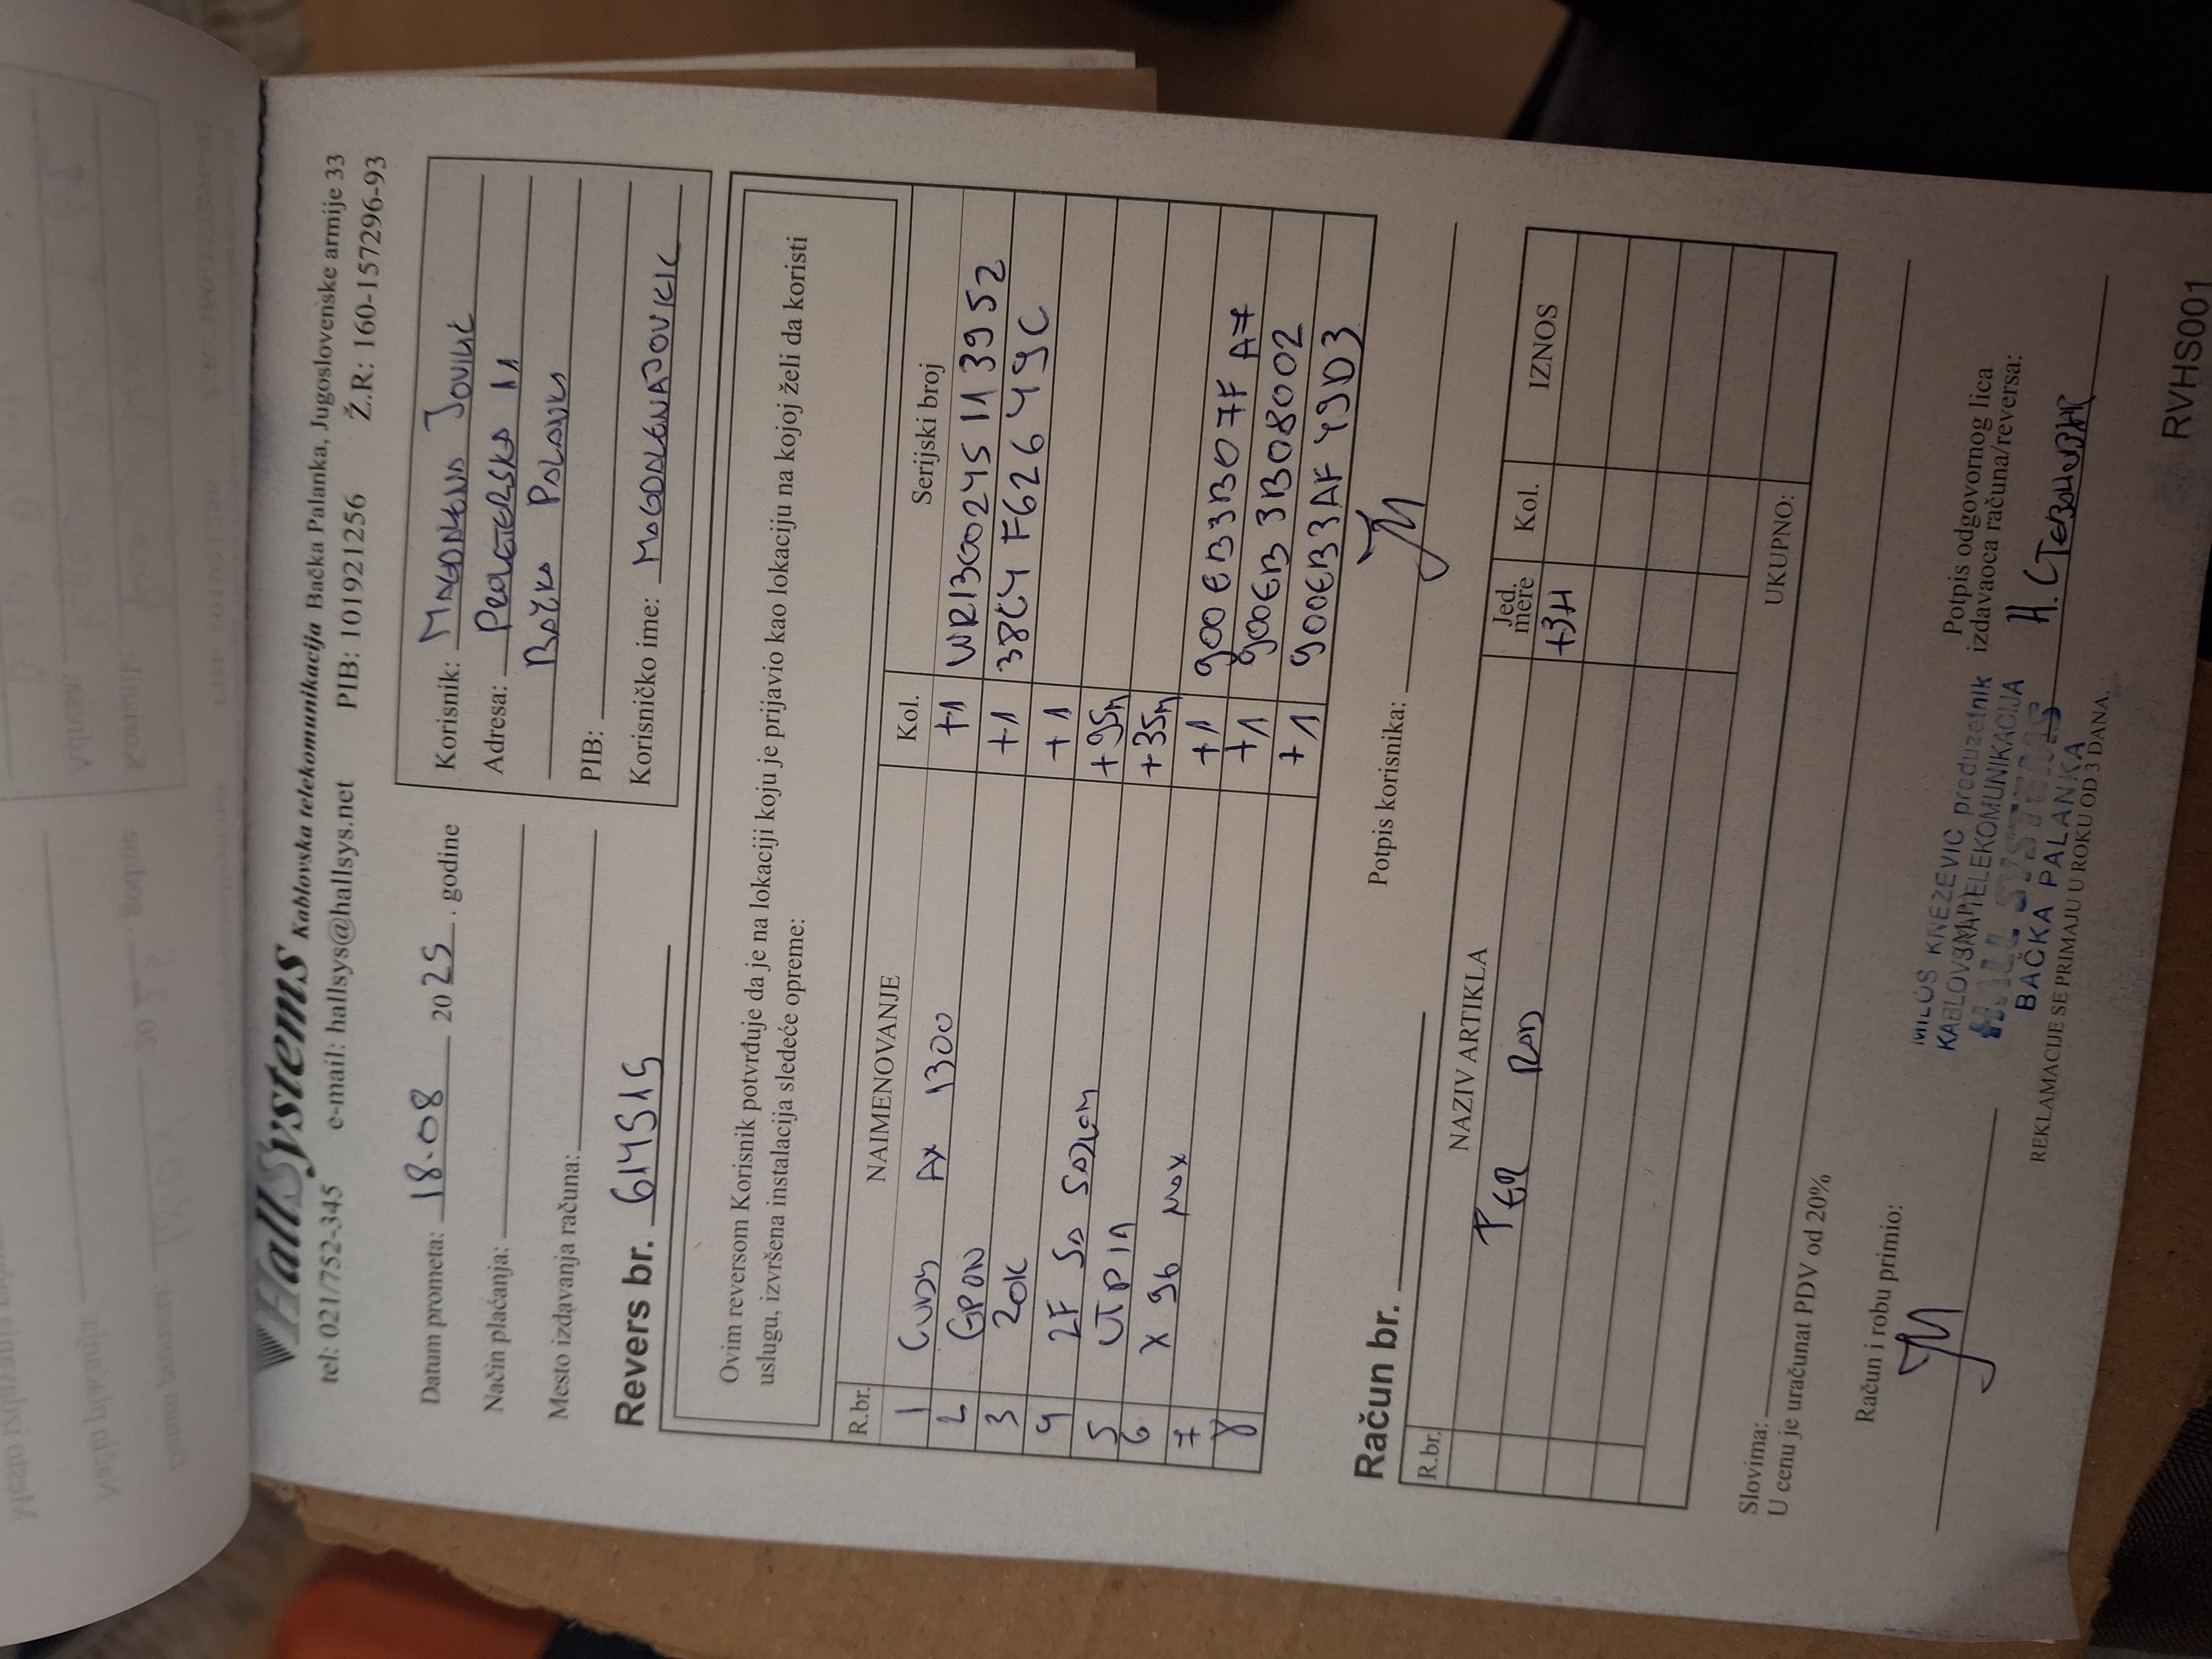 HallSystems Kablovska telekomunikacija Bačka Palanka, Jugoslovenske armije 33
tel: 021/752-345 e-mail: hallsys@hallsys.net PIB: 101921256 Ž.R: 160-157296-93
Datum prometa: 18.08 2025. godine
Način plaćanja:
Mesto izdavanja računa:
Revers br. 614515
Korisnik: MAGDALENA JOVIČIĆ
Adresa: PROLETERSKA 11
BAČKA PALANKA
PIB:
Korisničko ime: MAGDALENAJOVICIC
Ovim reversom Korisnik potvrđuje da je na lokaciji koju je prijavio kao lokaciju na kojoj želi da koristi
uslugu, izvršena instalacija sledeće opreme:
R.br. NAIMENOVANJE Kol. Serijski broj
1 CUDY AX 1300 +1 WR1300245113952
2 GPON +1 38C4F626449C
3 ZOK +1
4 2F SA SAJLOM +95m
5 UTP IN +35m
6 X 96 MAX +1 900EB3B07FA7
7 +1 900EB33B08002
8 +1 900EB3AF49D3
Potpis korisnika:
Račun br.
R.br. NAZIV ARTIKLA Jed. mere Kol. IZNOS
TER RAD +3H
UKUPNO:
Slovima:
U cenu je uračunat PDV od 20%
Račun i robu primio:
Potpis odgovornog lica
izdavaoca računa/reversa:
MILOŠ KNEŽEVIĆ preduzetnik
KABLOVSKA TELEKOMUNIKACIJA
HALL SYSTEMS
BAČKA PALANKA
REKLAMACIJE SE PRIMAJU U ROKU OD 3 DANA.
RVHS001